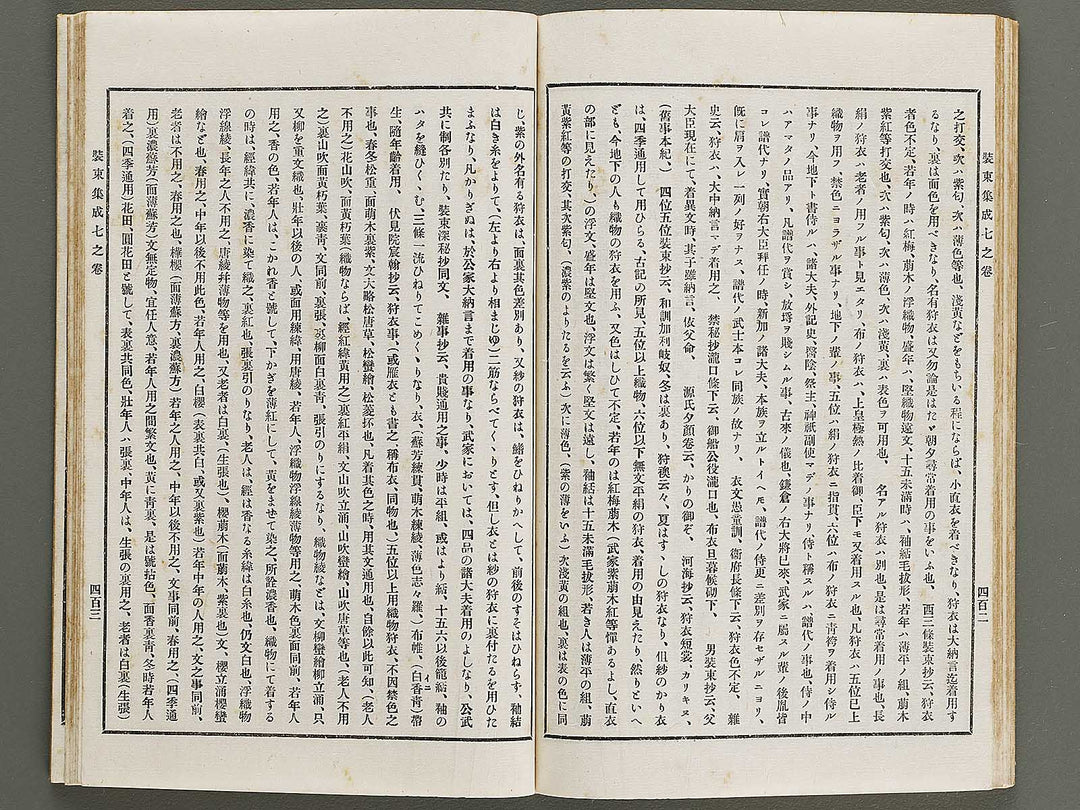 裝束集成七之卷
四百二
之打交、次ハ紫匂、次ハ薄色等也、淺黃などをもちいる程にならば、小直衣を着べきなり、狩衣は大納言迄着用す
るなり、裏は面色を用べきなり、名有狩衣は又勿論是はたゞ朝夕尋常着用の事をいふ也、 西三條裝束抄云、狩衣
者色不定、若年ノ時ハ紅梅、萠木ノ浮織物、盛年ハ、堅織物遠文、十五未滿時ハ、袖結毛拔形、若年ハ薄平ノ組、萠木
紫紅等打交也、次ハ紫匂、次ハ薄色、次ハ淺黃、裏ハ表色ヲ可用也、 名アル狩衣ハ別也、是は尋常着用ノ事也、長
絹ノ狩衣ハ、老者ノ用フル事ト見エタリ、布ノ狩衣ハ、上皇極熱ノ比着御、臣下モ又着用スル也、凡狩衣ハ五位已上
織物ヲ用フ、禁色ニヨラザル事ナリ、地下ノ輩ノ事、五位ハ絹ノ狩衣ニ指貫、六位ハ布ノ狩衣ニ靑袴ヲ着用シ侍ル
事ナリ、今地下ト書侍ルハ、諸大夫、外記史、醫陰、祭主、神祇副使マデノ事ナリ、侍ト稱スルハ、諸代ノ事也、侍ノ中
ハアマタノ品アリ、凡譜代ヲ賞シ、放埒ヲ賤シムル事、古來ノ儀也、鎌倉ノ右大將已來、武家ニ屬スル輩ノ後胤皆
コレ譜代ナリ、實朝右大臣拜任ノ時、新加ノ諸大夫、本族ヲ立ルトイヘ𪜈、譜代ノ侍更ニ差別ヲ存セザルニヨリ、
旣に肩ヲ入レ一列ノ好ヲナス、譜代ノ武士本コレ同族ノ故ナリ、 衣文愚童訓、衞府長條下云、狩衣色不定、 雜
史云、狩衣ハ、大中納言ニテ着用之、 禁秘抄瀧口條下云、御船公役瀧口也、布衣旦暮候砌下、 男裝束抄云、父
大臣現在にて、着異文時、其子雖納言、依父命、 源氏夕顏卷云、かりの御ぞ、 河海抄云、狩衣短裳、カリキヌ、
(舊事本紀) 四位五位裝束抄云、和訓加利岐奴、冬は裏あり、狩襖云々、夏はすゞしの狩衣なり、但紗のかり衣
は、四季通用して用ひらる、古記の所見、五位以上織物、六位以下無文平絹の狩衣、着用の由見えたり、然りといへ
ども、今地下の人も織物の狩衣を用ふ、又色はしひて不定、若年のは紅梅萠木(武家紫萠木紅等憚あるよし、直衣
の部に見えたり、)の浮文、盛年は堅文也、浮文は繁く堅文は遠し、袖結は十五未滿毛拔形、若き人は薄平の組、萠
黃紫紅等の打交、其次紫匂、(濃紫のよりたるを云ふ)次に薄色、(紫の薄をいふ)次淺黃の組也、裏は表の色に同
じ、紫の外名有る狩衣は、面裏其色差別あり、又紗の狩衣は、鰭をひねりかへして、前後のすそはひねらす、袖結
は白き糸をよりて、(左より右より相まじゆ)二筋ならべてくゝりとす、但し衣とは紗の狩衣に裏付たるを用ひた
まふなり、凡かりぎぬは、於公家大納言まで着用の事なり、武家においては、四品の諸大夫着用のよしなり、公武
共に制各別たり、裝束深秘抄同文、 雜事抄云、貴賤通用之事、少時は平組、或はより結、十五六以後龍結、袖の
ハタを縫ひくゝむ、三條一流ひねりてこめくゝりなり、衣、(蘇芳練貫、萠木練綾、薄色志々羅、)布帷、(白香靑)帶
生、隨年齡着用、 伏見院宸翰抄云、狩衣事、(或雁衣とも書之、稱布衣、同物也、)五位以上用織物狩衣、不因禁色之
事也、春冬松重、(面萠木裏紫、文大略松唐草、松蠻繪、松菱抔也、凡着其色之時、用其文通用也、自餘以此可知、(老人
不用之)花山吹、(面黃朽葉(織物ならば、經紅緯黃用之)裏紅平絹、文山吹立涌、山吹蠻繪、山吹唐草等也、(老人不用
之)裏山吹(面黃朽葉、裏靑)文同前、裏張、裏柳面白裏靑、張引のりにするなり、織物綾などは、文柳蠻繪柳立涌、只
又柳を重文織也、壯年以後の人、或面用練綾、用唐綾、若年人、浮織物浮線綾薄物等用之、萠木色裏面同前、若年人
用之、香の色、若年人は、こかれ香と號して、下かぎを薄紅にして、黃をませて染之、所詮濃香也、織物にて着する
の時は、經緯共に、濃香に染て織之、裏紅也、張裏引のりなり、老人は、經は香なる糸緯は白糸也、仍文白也、浮織物
浮線綾、長年之人不用之、唐綾幷薄物等を用也、又老者は白裏、(生張也)、櫻萠木(面萠木、紫裏也)文、櫻立涌櫻蠻
繪など也、春用之、中年以後不用此色、若年人用之、白櫻(表裏共白、或又裏紫也)若年中年の人用之、文之事同前、
老者は不用之、春用之也、樺櫻(面薄蘇方、裏濃蘇方)若年之人用之、中年以後不用之、文事同前、春用之、(四季通
用)(裏濃蘇芳(面薄蘇芳)文無定物、宜任人意、若年人用之間繁文也、黃に靑裏、是は號拈色、面香裏靑、冬時若年人
着之、(四季通用)花田、圓花田と號して、表裏共同色、壯年人ハ張裏、中年人は、生張の裏用之、老者は白裏(生張)
裝束集成七之卷
四百三